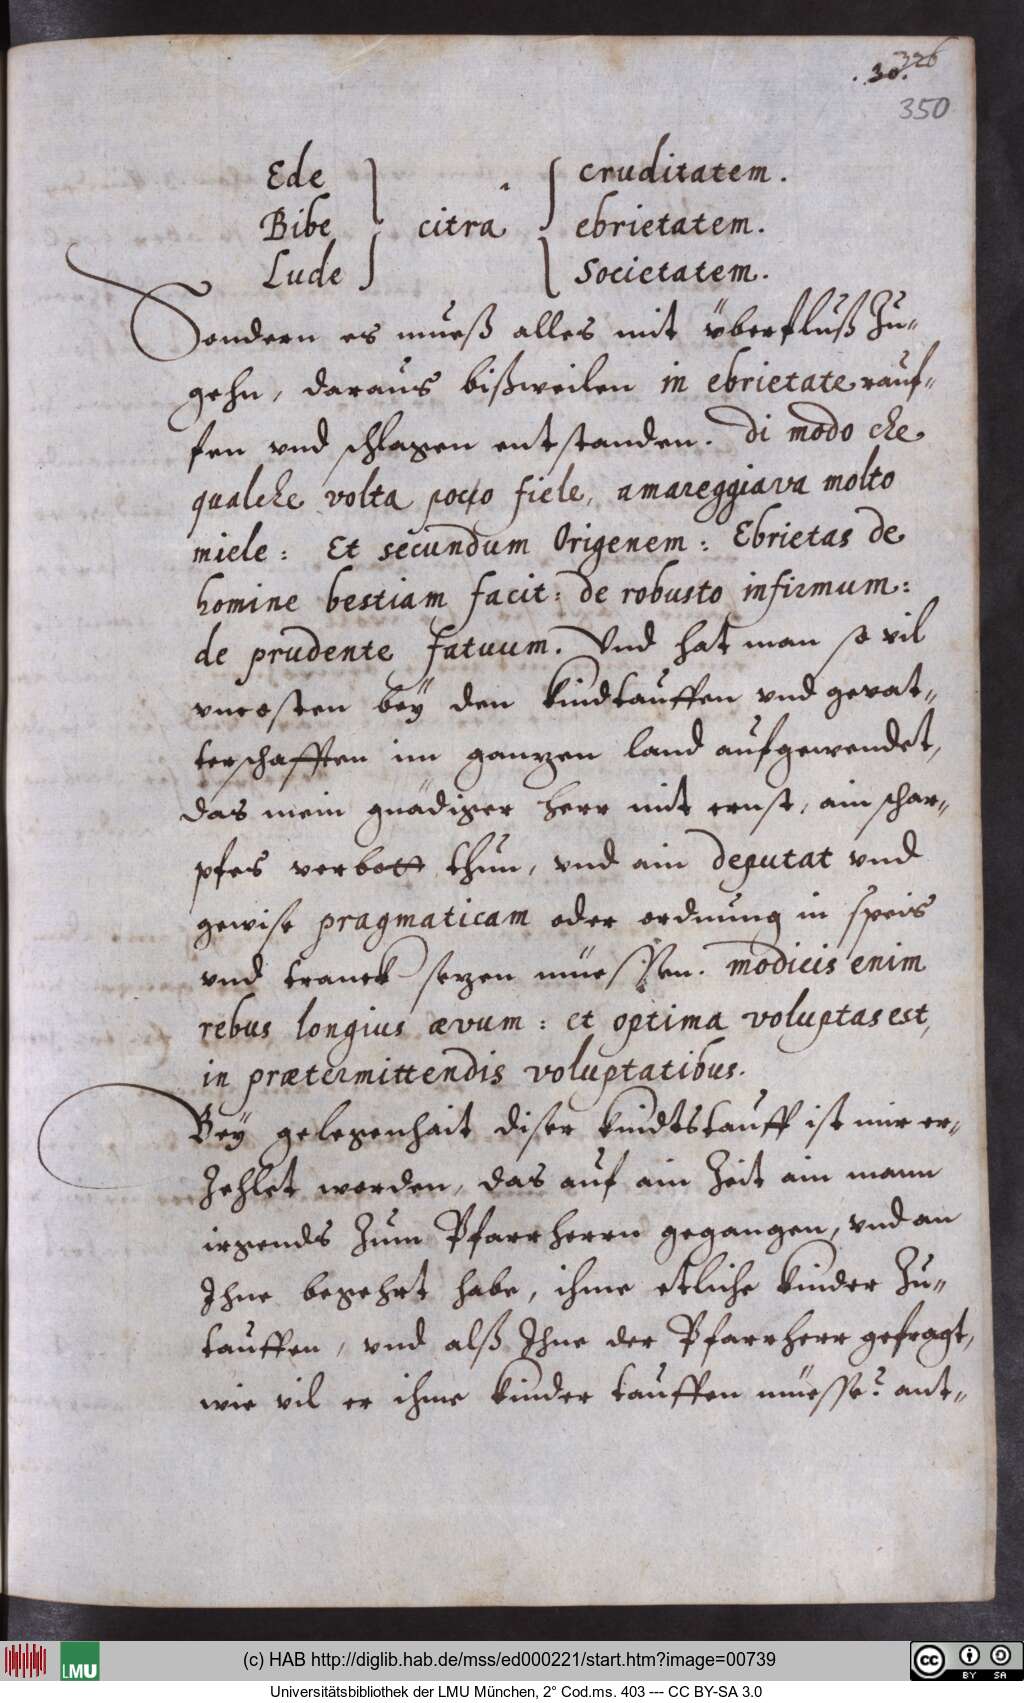 326
.30.
350
Ede cruditatem.
Bibe citra ebrietatem.
Lude Societatem.
Sondern es mueß alles mit überfluß Zu-
gehn, daraus bißweilen in ebrietate rauf-
fen vnd schlagen entstanden. Di modo che
qualche volta poco fiele, amareggiava molto
miele: Et secundum Origenem: Ebrietas de
homine bestiam facit: de robusto infirmum:
de prudente fatuum. Vnd hat man so vil
vncosten beÿ den kindtauffen vnd gevat-
terschafften im ganzen land aufgewendet,
das mein gnädiger herr mit ernst, ain schar-
pfes verbott thun, vnd ain deputat vnd
gewise pragmaticam oder ordnung in speis
vnd tranck sezen müessen. modicis enim
rebus longius ævum: et optima voluptas est,
in prætermittendis voluptatibus.
Beÿ gelegenhait diser kindtstauff ist mir er-
Zehlet worden, das auf ain Zeit ain mann
irgends Zum Pfarrherrn gegangen, vnd an
Ihne begehrt habe, ihme etliche kinder Zu-
tauffen, vnd alß Ihne der Pfarrherr gefragt,
wie vil er ihme kinder tauffen müesse? ant-
(c) HAB http://diglib.hab.de/mss/ed000221/start.htm?image=00739
LMU
cc BY SA
Universitätsbibliothek der LMU München, 2° Cod.ms. 403 --- CC BY-SA 3.0